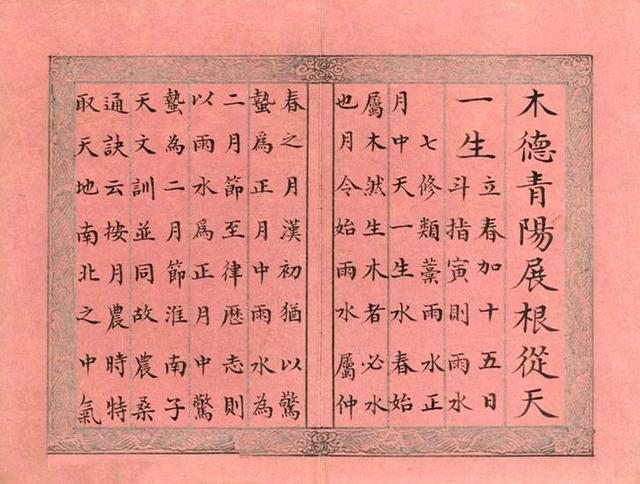 木德青陽展根從天
一生
立春加十五日
斗指寅則雨水
七修類藁雨水正
月中天一生水春始
屬木然生木者必水
也月令始雨水屬仲
春之月漢初猶以驚
蟄爲正月中雨水為
二月節至律歷志則
以雨水爲正月中驚
蟄為二月節淮南子
天文訓並同故農桑
通訣云按月農時特
取天地南北之中氣